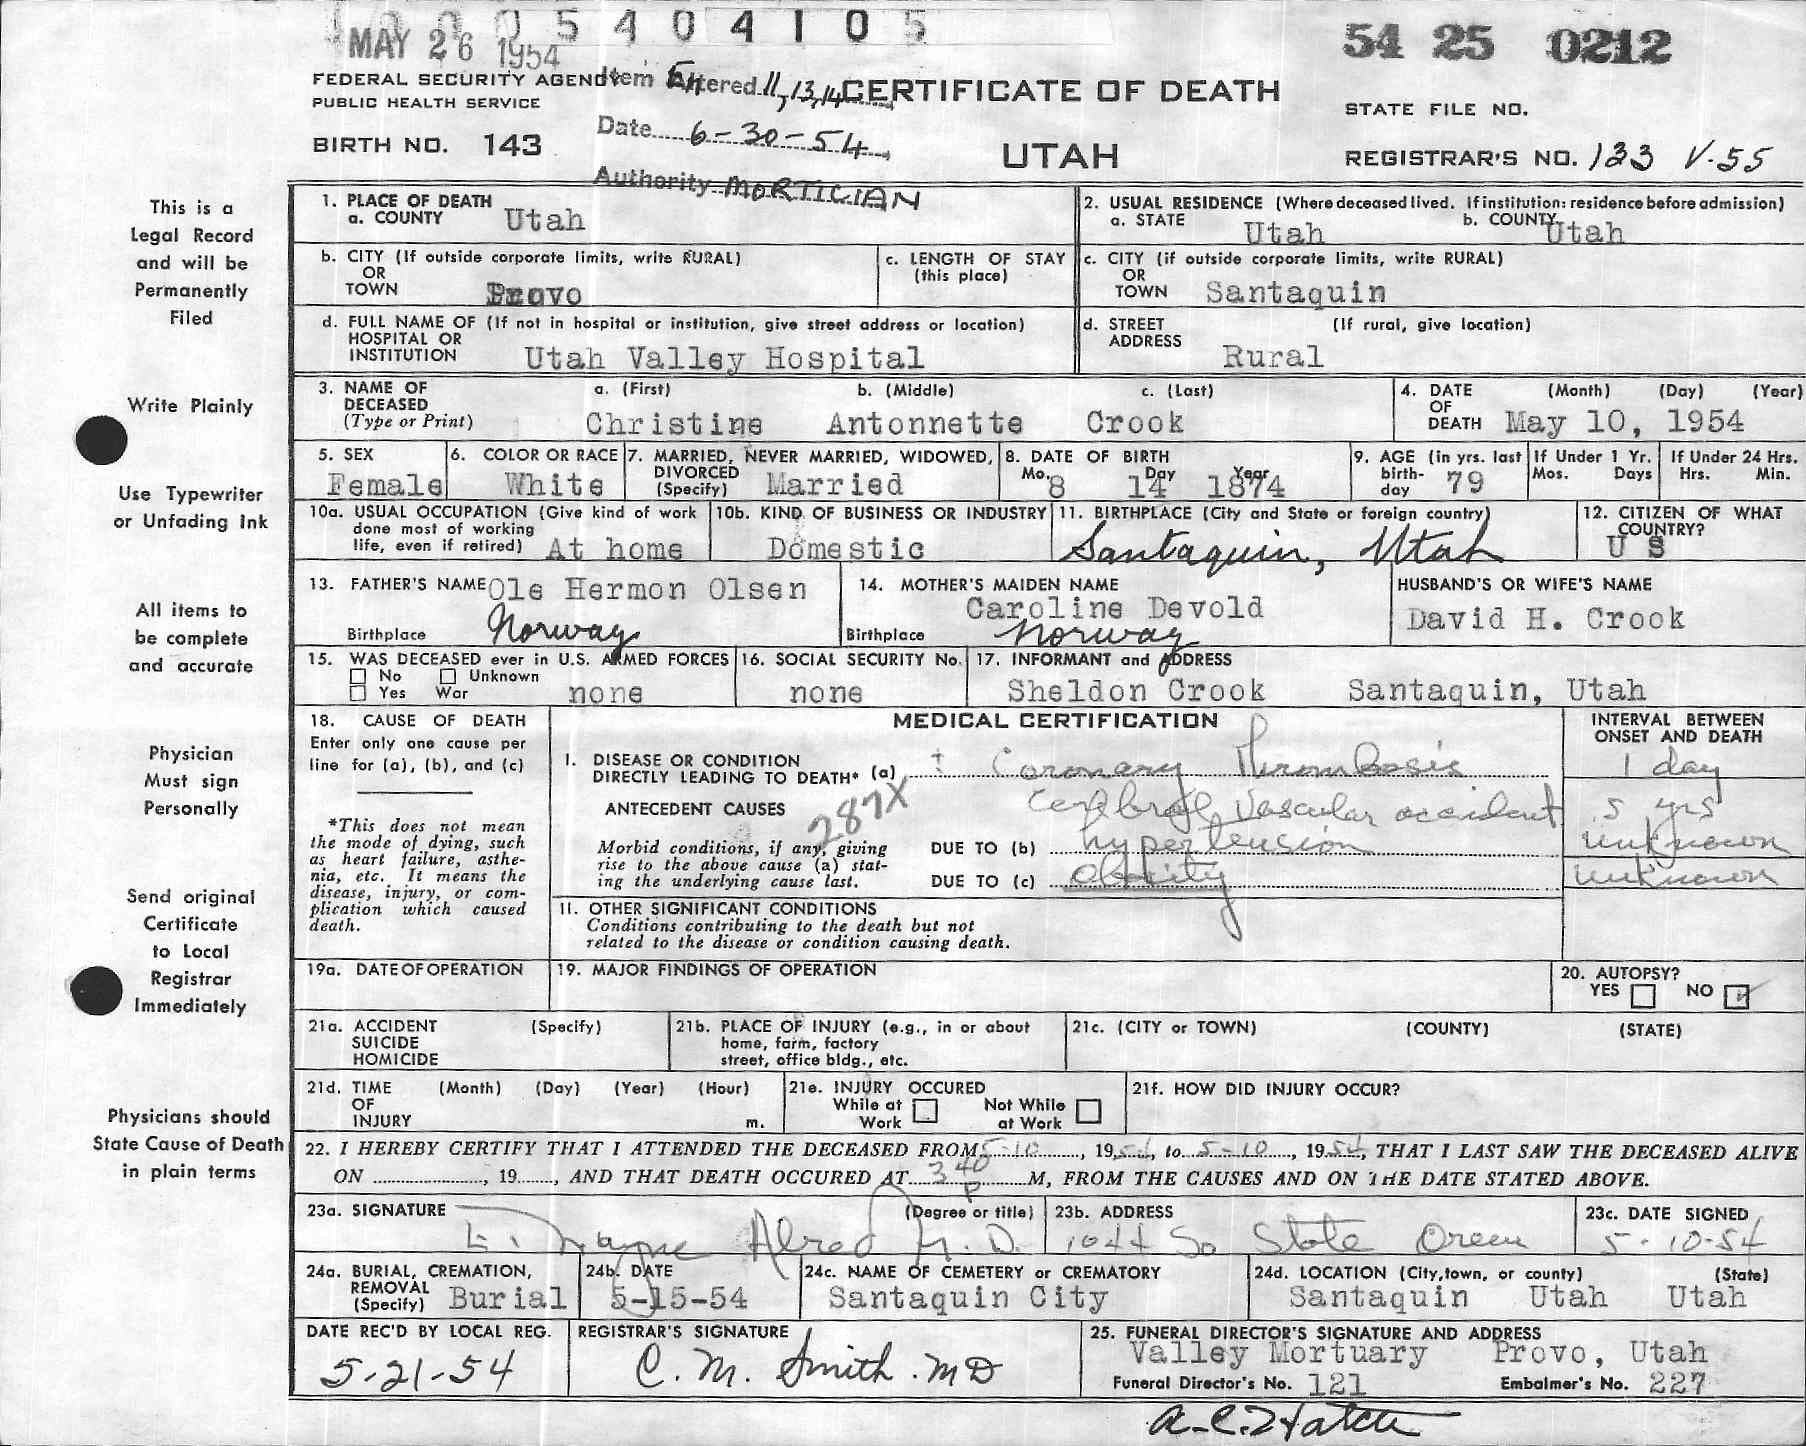 1 0 0 0 5 4 0 4 1 0 5
MAY 26 1954
54 25 0212
FEDERAL SECURITY AGENCY
PUBLIC HEALTH SERVICE
Item Entered 11, 13, 14
CERTIFICATE OF DEATH
STATE FILE NO.
Date 6-30-54
BIRTH NO. 143
UTAH
REGISTRAR'S NO. 133 V-55
Authority MORTICIAN
This is a
Legal Record
and will be
Permanently
Filed
Write Plainly
Use Typewriter
or Unfading Ink
All items to
be complete
and accurate
Physician
Must sign
Personally
Send original
Certificate
to Local
Registrar
Immediately
Physicians should
State Cause of Death
in plain terms
1. PLACE OF DEATH
a. COUNTY Utah
2. USUAL RESIDENCE (Where deceased lived. If institution: residence before admission)
a. STATE Utah b. COUNTY Utah
b. CITY (If outside corporate limits, write RURAL)
OR
TOWN Provo
c. LENGTH OF STAY
(this place)
c. CITY (if outside corporate limits, write RURAL)
OR
TOWN Santaquin
d. FULL NAME OF (If not in hospital or institution, give street address or location)
HOSPITAL OR
INSTITUTION Utah Valley Hospital
d. STREET (If rural, give location)
ADDRESS Rural
3. NAME OF a. (First) b. (Middle) c. (Last)
DECEASED
(Type or Print) Christine Antonnette Crook
4. DATE (Month) (Day) (Year)
OF
DEATH May 10, 1954
5. SEX
Female
6. COLOR OR RACE
White
7. MARRIED, NEVER MARRIED, WIDOWED,
DIVORCED
(Specify) Married
8. DATE OF BIRTH
Mo. 8 Day 14 Year 1874
9. AGE (in yrs. last
birth-
day 79
If Under 1 Yr.
Mos. Days
If Under 24 Hrs.
Hrs. Min.
10a. USUAL OCCUPATION (Give kind of work
done most of working
life, even if retired) At home
10b. KIND OF BUSINESS OR INDUSTRY
Domestic
11. BIRTHPLACE (City and State or foreign country)
Santaquin, Utah
12. CITIZEN OF WHAT
COUNTRY?
U S
13. FATHER'S NAME Ole Hermon Olsen
Birthplace Norway
14. MOTHER'S MAIDEN NAME
Caroline Devold
Birthplace Norway
HUSBAND'S OR WIFE'S NAME
David H. Crook
15. WAS DECEASED ever in U.S. ARMED FORCES
No Unknown
Yes War none
16. SOCIAL SECURITY No.
none
17. INFORMANT and ADDRESS
Sheldon Crook Santaquin, Utah
18. CAUSE OF DEATH
Enter only one cause per
line for (a), (b), and (c)
*This does not mean
the mode of dying, such
as heart failure, asthe-
nia, etc. It means the
disease, injury, or com-
plication which caused
death.
MEDICAL CERTIFICATION
INTERVAL BETWEEN
ONSET AND DEATH
I. DISEASE OR CONDITION
DIRECTLY LEADING TO DEATH* (a) Coronary Thrombosis 1 day
ANTECEDENT CAUSES 287X Cerebral Vascular accident 5 yrs
Morbid conditions, if any, giving
rise to the above cause (a) stat-
ing the underlying cause last.
DUE TO (b) hypertension unknown
DUE TO (c) obesity unknown
II. OTHER SIGNIFICANT CONDITIONS
Conditions contributing to the death but not
related to the disease or condition causing death.
19a. DATE OF OPERATION
19. MAJOR FINDINGS OF OPERATION
20. AUTOPSY?
YES NO
21a. ACCIDENT (Specify)
SUICIDE
HOMICIDE
21b. PLACE OF INJURY (e.g., in or about
home, farm, factory
street, office bldg., etc.
21c. (CITY or TOWN) (COUNTY) (STATE)
21d. TIME (Month) (Day) (Year) (Hour)
OF
INJURY m.
21e. INJURY OCCURED
While at Not While
Work at Work
21f. HOW DID INJURY OCCUR?
22. I HEREBY CERTIFY THAT I ATTENDED THE DECEASED FROM 5-10, 1954, to 5-10, 1954, THAT I LAST SAW THE DECEASED ALIVE
ON , 19 , AND THAT DEATH OCCURED AT 3 40 P M, FROM THE CAUSES AND ON THE DATE STATED ABOVE.
23a. SIGNATURE (Degree or title)
Wayne Alred M.D.
23b. ADDRESS
1044 So State Orem
23c. DATE SIGNED
5-10-54
24a. BURIAL, CREMATION,
REMOVAL
(Specify) Burial
24b. DATE
5-15-54
24c. NAME OF CEMETERY or CREMATORY
Santaquin City
24d. LOCATION (City, town, or county) (State)
Santaquin Utah Utah
DATE REC'D BY LOCAL REG.
5-21-54
REGISTRAR'S SIGNATURE
C. M. Smith. MD
25. FUNERAL DIRECTOR'S SIGNATURE AND ADDRESS
Valley Mortuary Provo, Utah
Funeral Director's No. 121 Embalmer's No. 227
A. C. Hatch